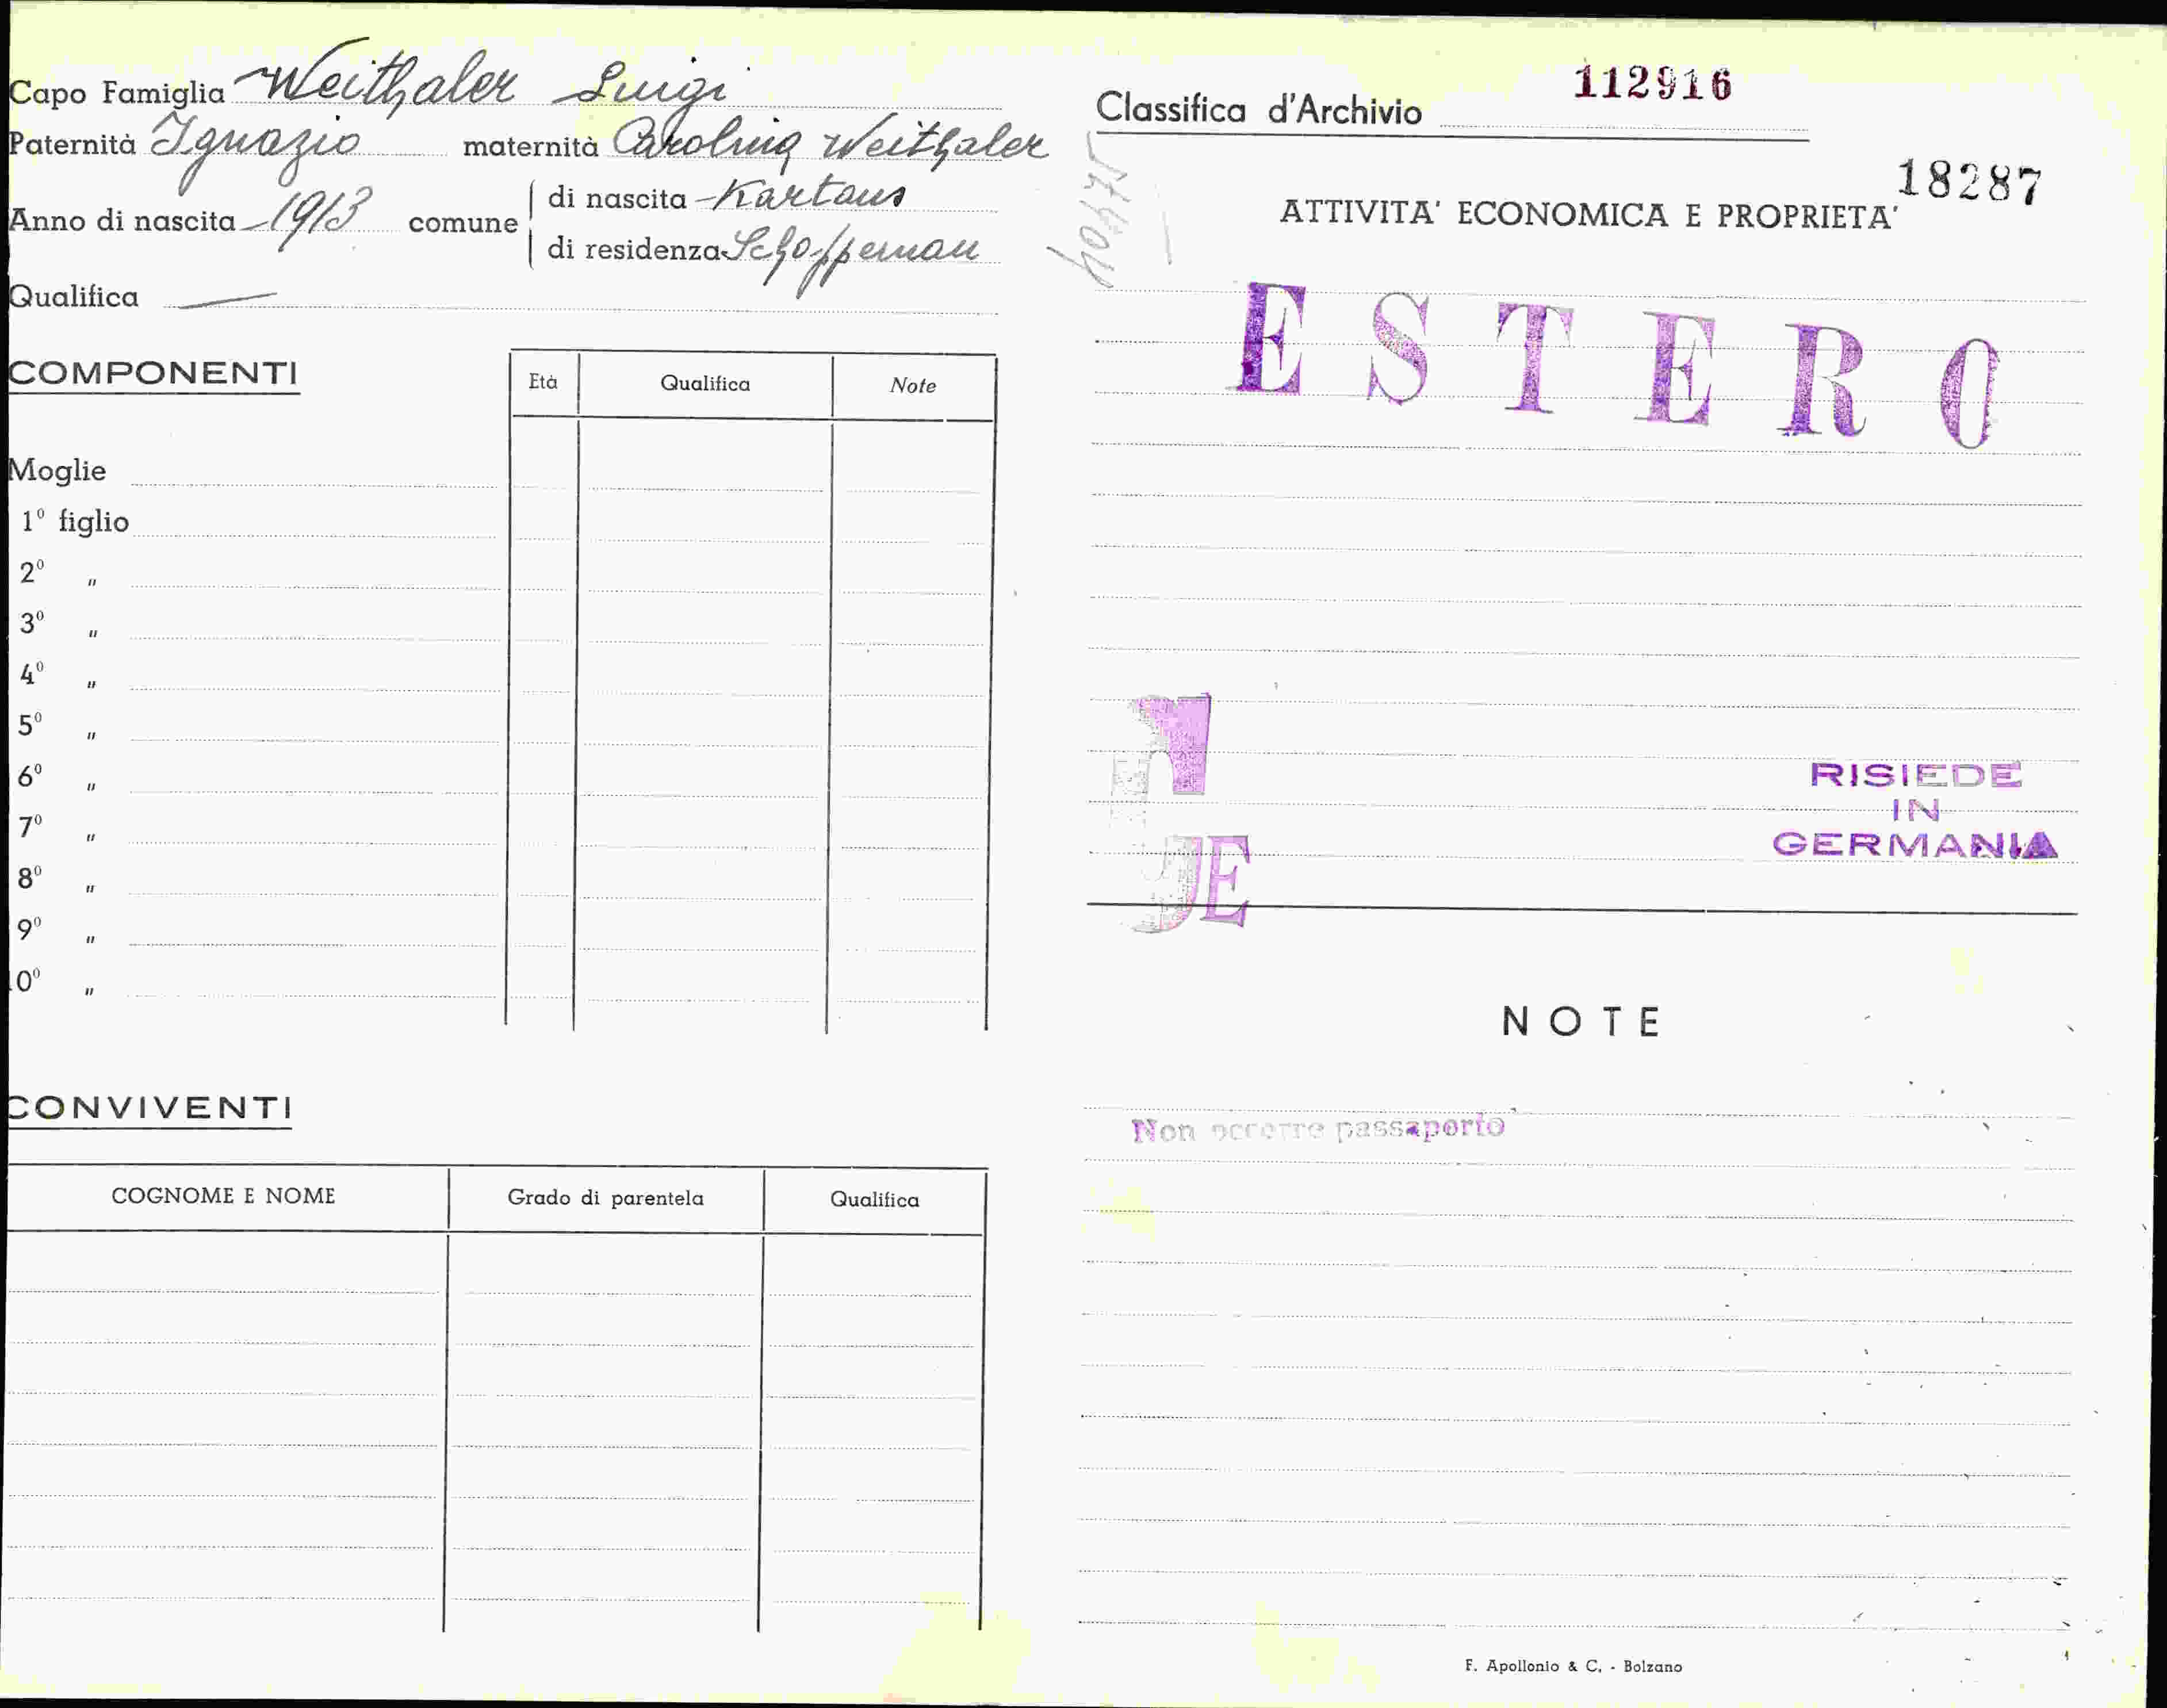 Capo Famiglia Weithaler Luigi
Paternità Ignazio maternità Carolina Weithaler
Anno di nascita 1913 comune
di nascita Kartaus
di residenza Schoppernau
Qualifica —
COMPONENTI
Età Qualifica Note
Moglie
1º figlio
2º "
3º "
4º "
5º "
6º "
7º "
8º "
9º "
0º "
CONVIVENTI
COGNOME E NOME Grado di parentela Qualifica
112916
Classifica d'Archivio
18287
ATTIVITA' ECONOMICA E PROPRIETA'
ESTERO
RISIEDE
IN
GERMANIA
NOTE
Non occorre passaporto
F. Apollonio & C. - Bolzano